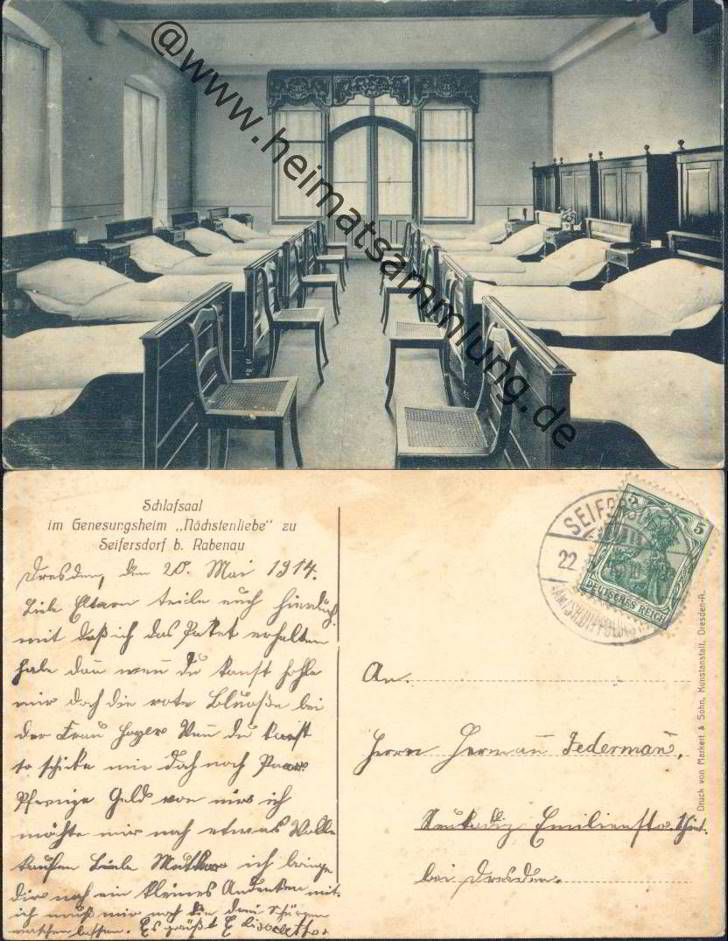 @www.heimatsammlung.de
Schlafsaal
im Genesungsheim „Nächstenliebe" zu
Seifersdorf b. Rabenau
Dresden, den 20. Mai 1914.
Liebe Eltern teile euch hierduch
mit daß ich das Paket erhalten
habe dan wenn du kanst hohle
mir doch die rote Bluße bei
der Frau Hoyer Wen du kanst
so schicke mir doch noch Paar
Pfennige Geld von mir ich
möchte mir noch etwas Wolle
kaufen Liebe Mutter ich bringe
dir noch ein kleines Andenken mit.
ich muß mir noch die drei Schürzen
waschen lassen. Es grüßt Elisabeth
SEIFERSDORF
22
5
DEUTSCHES REICH
An
Herrn Herman̄ Federman̄,
Emilienstr.
bei Dresden.
Druck von Markert & Sohn, Kunstanstalt, Dresden-A.